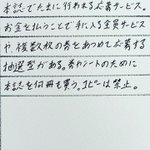 本誌でたまに行われる応募サービス。
お金を払うことで手に入る全員サービス
や、複数枚の券をあつめて応募する
抽選型がある。券やシートのために
本誌を何冊も買う。コピーは禁止。